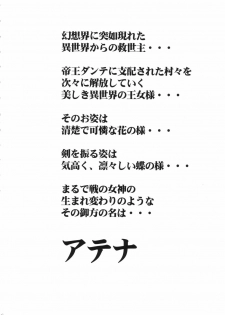 幻想界に突如現れた
異世界からの救世主・・・
帝王ダンテに支配された村々を
次々に解放していく
美しき異世界の王女様・・・
そのお姿は
清楚で可憐な花の様・・・
剣を振る姿は
気高く、凛々しい蝶の様・・・
まるで戦の女神の
生まれ変わりのような
その御方の名は・・・
アテナ